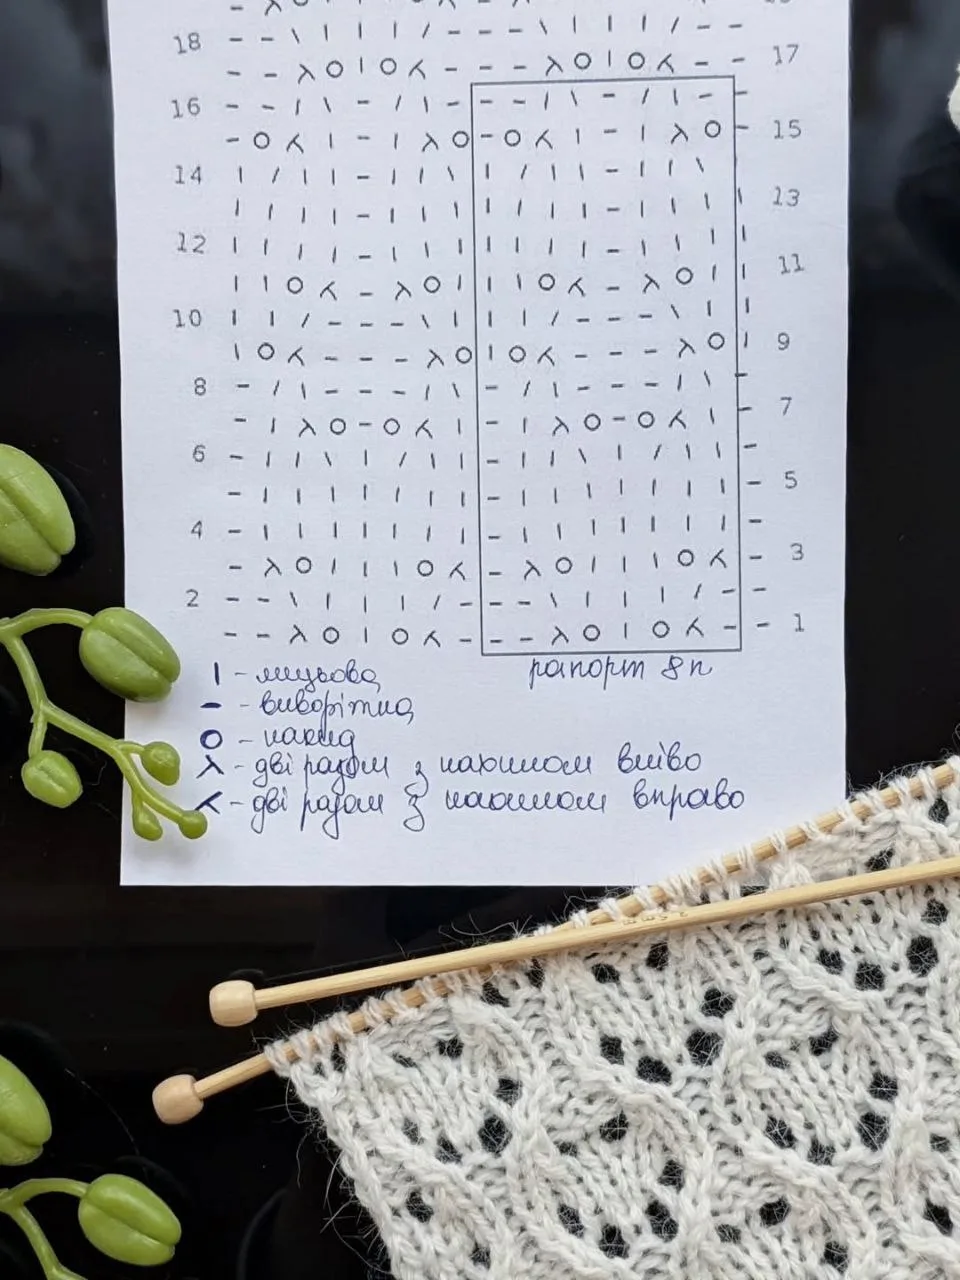 18 - - \ | | | / - - - \ | | | / - -
- - λ O | O ⋌ - - - λ O | O ⋌ - - 17
16 - - | \ - / | - - - | \ - / | - -
- O ⋌ | - | λ O - O ⋌ | - | λ O - 15
14 | / | | - | | \ | / | | - | | \
| | | | - | | | | | | | - | | | | 13
12 | | | | - | | | | | | | - | | | |
| | O ⋌ - λ O | | | O ⋌ - λ O | | 11
10 | | / - - - \ | | | / - - - \ | |
| O ⋌ - - - λ O | O ⋌ - - - λ O | 9
8 - / | - - - | \ - / | - - - | \ -
- | λ O - O ⋌ | - | λ O - O ⋌ | - 7
6 - | | \ | / | | - | | \ | / | | -
- | | | | | | | - | | | | | | | - 5
4 - | | | | | | | - | | | | | | | -
- λ O | | | O ⋌ - λ O | | | O ⋌ - 3
2 - - \ | | | / - - - \ | | | / - -
- - λ O | O ⋌ - - - λ O | O ⋌ - - 1
рапорт 8п
| - лицьова
- - виворітна
O - накид
λ - дві разом з нахилом вліво
⋌ - дві разом з нахилом вправо